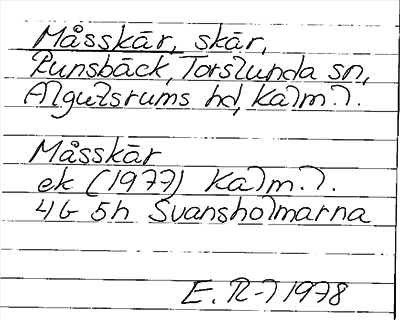 Måsskär, skär,
Runsbäck, Torslunda sn,
Algutsrums hd, Kalm. l.
Måsskär
ek (1977) Kalm. l.
4G 5h Svansholmarna
E. R-l 1978